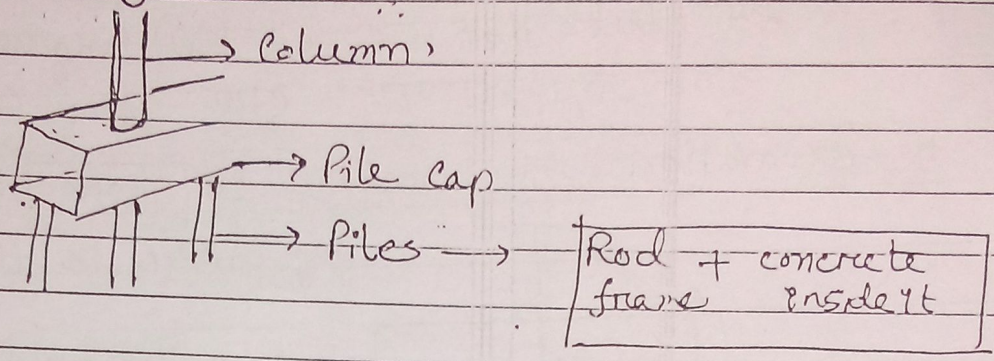 Column,
Pile cap
Piles
Rod + concrete
frame inside it